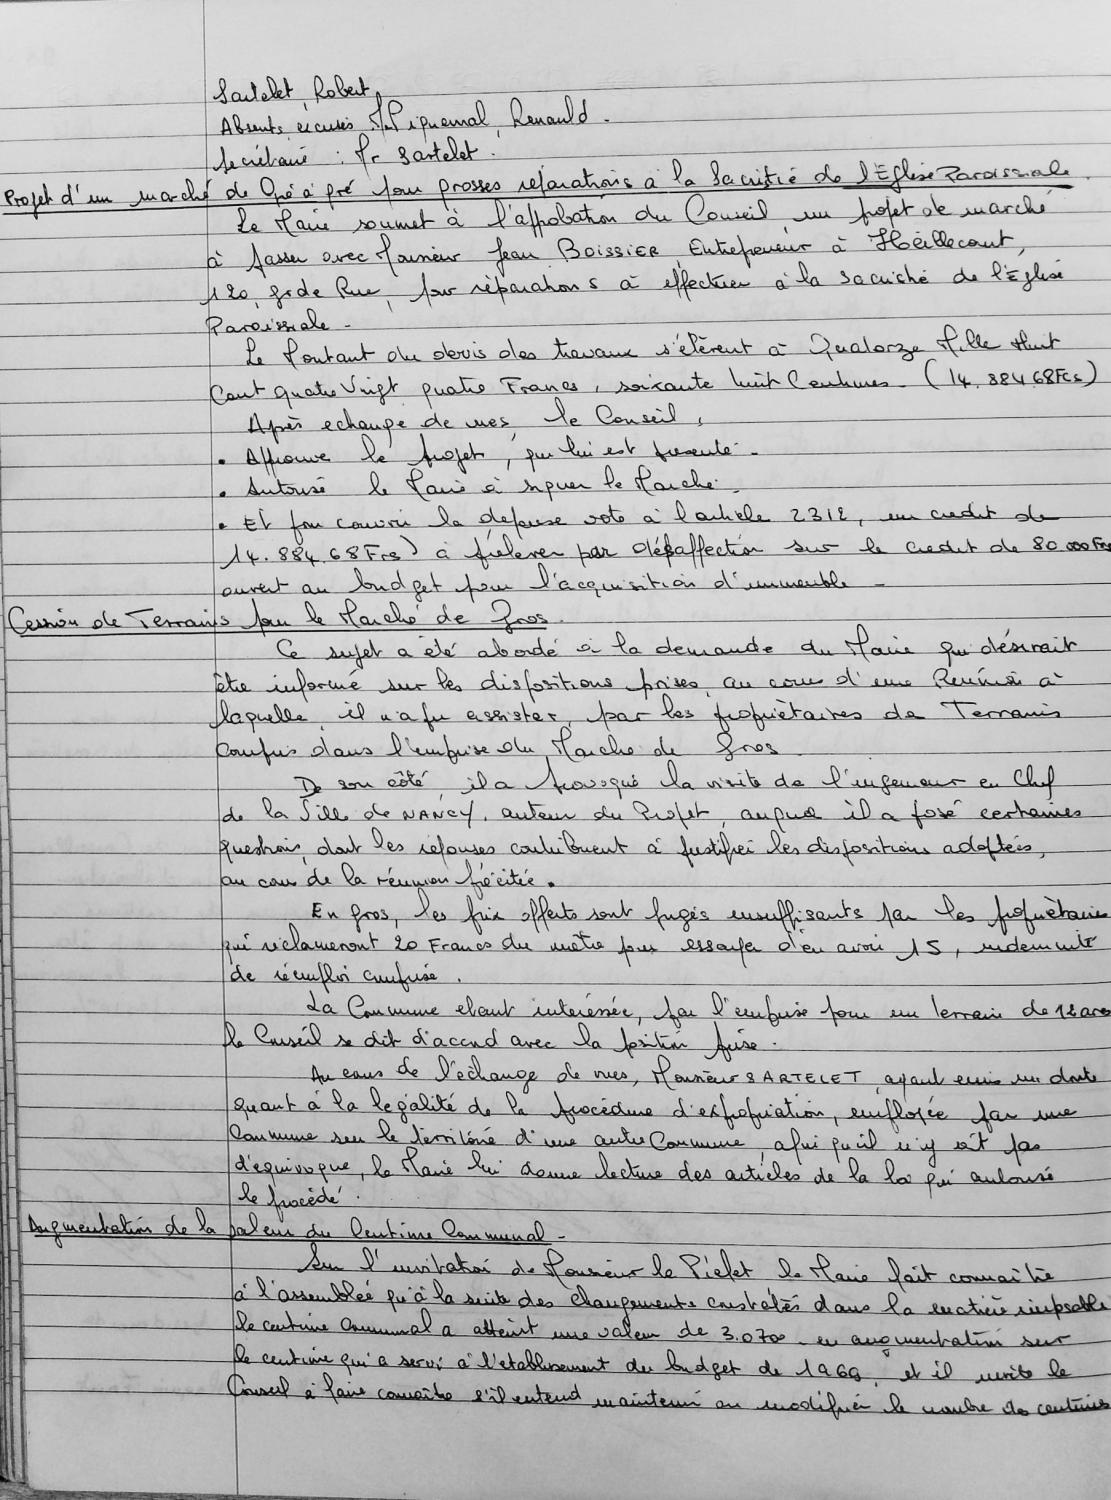 Sartelet, Robert,
Absents excusés : M. Piquemal, Renauld.
Secrétaire : Mr Sartelet.
Projet d'un marché de Gré à gré pour grosses réparations à la Sacristie de l'Eglise Paroissiale.
Le Maire soumet à l'approbation du Conseil un projet de marché
à passer avec Monsieur Jean BOISSIER, Entrepreneur à Heillecourt,
120, grde Rue, pour réparations à effectuer à la sacristie de l'Eglise
Paroissiale -
Le Montant du devis des travaux s'élèvent à Quatorze Mille Huit
Cent quatre Vingt quatre Francs, soixante huit Centimes - (14.884,68Fcs)
Après echange de vues, le Conseil,
• Approuve le projet, qui lui est présenté -
• Autorise le Maire à signer le Marché.
• Et pour couvrir la dépense vote à l'article 2312, un crédit de
14.884.68Frs) à prélever par désaffection sur le crédit de 80.000Frs
ouvert au budget pour l'acquisition d'immeuble -
Cession de Terrains pour le Marché de Gros.
Ce sujet a été abordé à la demande du Maire qui désirait
être informé sur les dispositions prises, au cours d'une Réunion à
laquelle, il n'a pu assister, par les propriètaires de Terrains
compris dans l'emprise du Marché de Gros
De son côté, il a provoqué la visite de l'ingenieur en Chef
de la Ville de NANCY, auteur du Projet, auquel il a posé certaines
questions, dont les réponses contribuent à justifier les dispositions adoptées,
au cours de la réunion précitée.
En gros, les prix offerts sont jugés insuffisants par les propriètaires
qui réclameront 20 Francs du mètre pour essayer d'en avoir 15, indemnité
de réemploi comprise.
La Commune étant intéressée, par l'emprise pour un terrain de 12 ares
le Conseil se dit d'accord avec la position prise.
Au cours de l'échange de vues, Monsieur SARTELET, ayant émis un doute
quant à la legalité de la procédure d'expropriation, employée par une
Commune sur le territoire d'une autre Commune, afin qu'il n'y ait pas
d'equivoque, le Maire lui donne lecture des articles de la loi qui autorise
le procédé.
Augmentation de la Valeur du Centime Communal -
Sur l'invitation de Monsieur le Préfet le Maire fait connaître
à l'assemblée qu'à la suite des changements constatés dans la matière imposable
le centime Communal a atteint une valeur de en augmentation sur
le centime qui a servi à l'etablissement du budget de 1969, et il invite le
Conseil à faire connaître s'il entend maintenir ou modifier le nombre de centimes